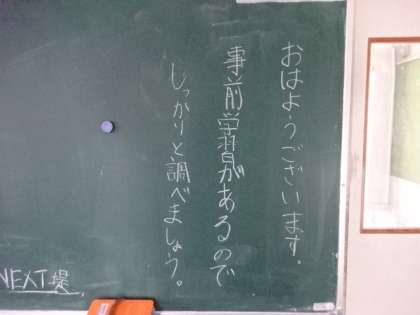 おはようございます.
事前学習があるので
しっかりと調べましょう。
NEXT場